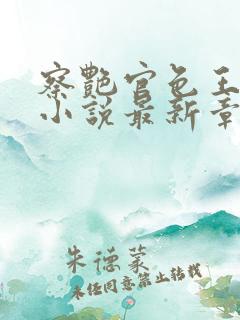 察艳官色王
小说最新章
朱德莱
未经同意禁止转载